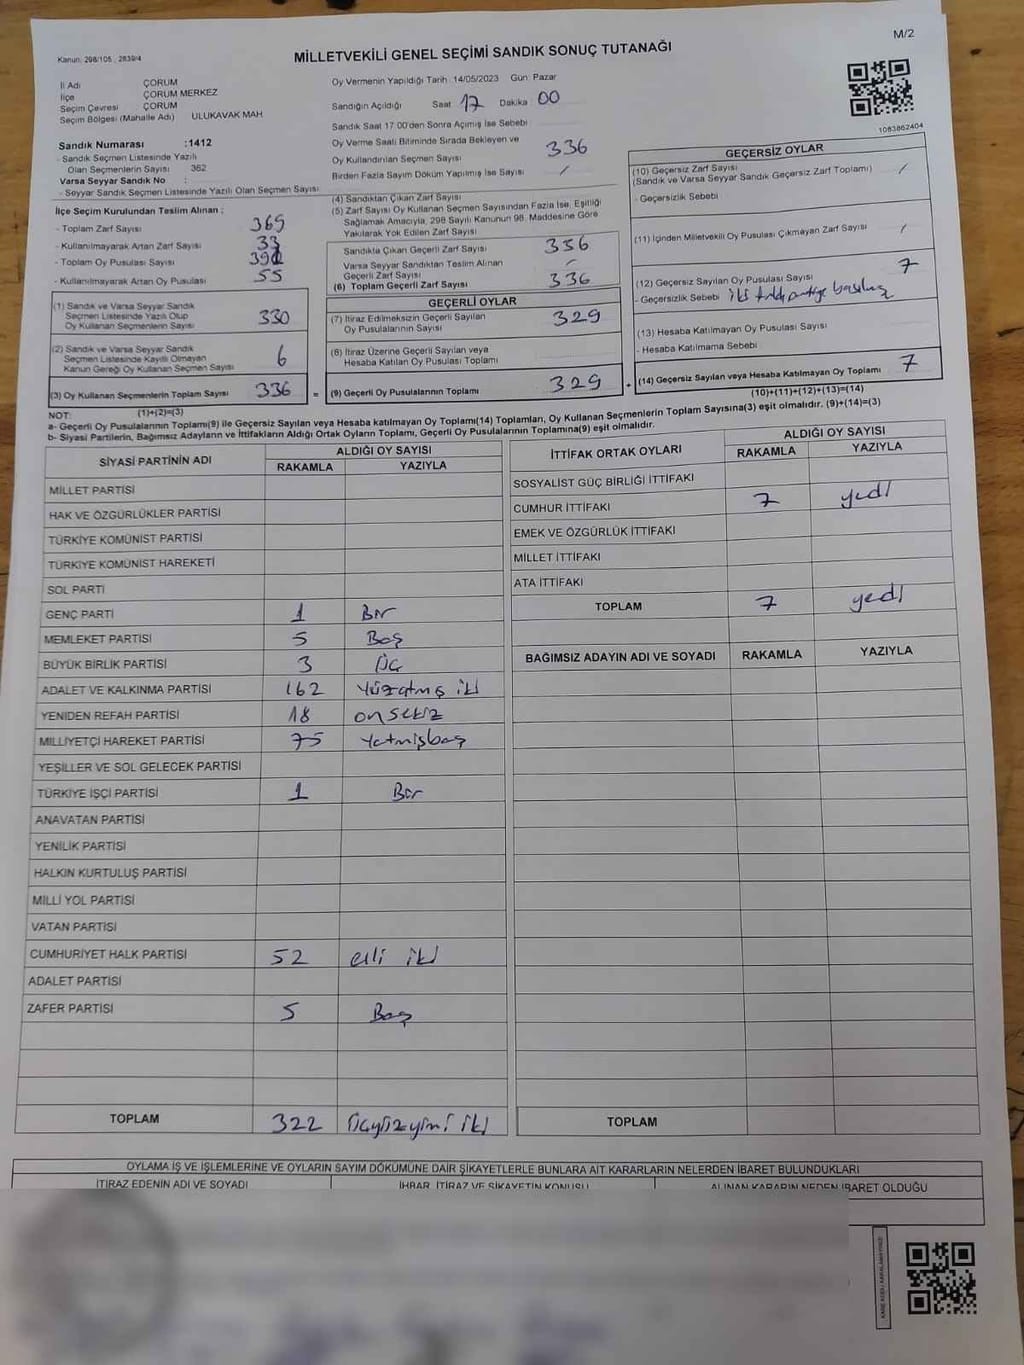 M/2
Kanun: 298/105 , 2839/4
MİLLETVEKİLİ GENEL SEÇİMİ SANDIK SONUÇ TUTANAĞI
İl Adı ÇORUM
İlçe ÇORUM MERKEZ
Seçim Çevresi ÇORUM
Seçim Bölgesi (Mahalle Adı) ULUKAVAK MAH
Sandık Numarası :1412
- Sandık Seçmen Listesinde Yazılı
Olan Seçmenlerin Sayısı 362
Varsa Seyyar Sandık No :
- Seyyar Sandık Seçmen Listesinde Yazılı Olan Seçmen Sayısı
Oy Vermenin Yapıldığı Tarih :14/05/2023 Gün: Pazar
Sandığın Açıldığı Saat 17 Dakika 00
Sandık Saat 17:00'den Sonra Açılmış İse Sebebi
Oy Verme Saati Bitiminde Sırada Bekleyen ve
Oy Kullandırılan Seçmen Sayısı 336
Birden Fazla Sayım Döküm Yapılmış İse Sayısı /
1083862404
İlçe Seçim Kurulundan Teslim Alınan :
- Toplam Zarf Sayısı 369
- Kullanılmayarak Artan Zarf Sayısı 33
- Toplam Oy Pusulası Sayısı
- Kullanılmayarak Artan Oy Pusulası 55
(1) Sandık ve Varsa Seyyar Sandık
Seçmen Listesinde Yazılı Olup
Oy Kullanan Seçmenlerin Sayısı 330
(2) Sandık ve Varsa Seyyar Sandık
Seçmen Listesinde Kayıtlı Olmayan
Kanun Gereği Oy Kullanan Seçmen Sayısı 6
(3) Oy Kullanan Seçmenlerin Toplam Sayısı 336 =
(1)+(2)=(3)
(4) Sandıktan Çıkan Zarf Sayısı
(5) Zarf Sayısı Oy Kullanan Seçmen Sayısından Fazla İse, Eşitliği
Sağlamak Amacıyla, 298 Sayılı Kanunun 98. Maddesine Göre
Yakılarak Yok Edilen Zarf Sayısı
Sandıkta Çıkan Geçerli Zarf Sayısı 336
Varsa Seyyar Sandıktan Teslim Alınan
Geçerli Zarf Sayısı /
(6) Toplam Geçerli Zarf Sayısı 336
GEÇERLİ OYLAR
(7) İtiraz Edilmeksizin Geçerli Sayılan
Oy Pusulalarının Sayısı 329
(8) İtiraz Üzerine Geçerli Sayılan veya
Hesaba Katılan Oy Pusulası Toplamı
(9) Geçerli Oy Pusulalarının Toplamı 329 +
GEÇERSİZ OYLAR
(10) Geçersiz Zarf Sayısı /
(Sandık ve Varsa Seyyar Sandık Geçersiz Zarf Toplamı)
- Geçersizlik Sebebi
(11) İçinden Milletvekili Oy Pusulası Çıkmayan Zarf Sayısı /
(12) Geçersiz Sayılan Oy Pusulası Sayısı 7
- Geçersizlik Sebebi
(13) Hesaba Katılmayan Oy Pusulası Sayısı
- Hesaba Katılmama Sebebi
(14) Geçersiz Sayılan veya Hesaba Katılmayan Oy Toplamı 7
(10)+(11)+(12)+(13)=(14)
NOT:
a- Geçerli Oy Pusulalarının Toplamı(9) ile Geçersiz Sayılan veya Hesaba katılmayan Oy Toplamı(14) Toplamları, Oy Kullanan Seçmenlerin Toplam Sayısına(3) eşit olmalıdır. (9)+(14)=(3)
b- Siyasi Partilerin, Bağımsız Adayların ve İttifakların Aldığı Ortak Oyların Toplamı, Geçerli Oy Pusulalarının Toplamına(9) eşit olmalıdır.
SİYASİ PARTİNİN ADI ALDIĞI OY SAYISI
RAKAMLA YAZIYLA
MİLLET PARTİSİ
HAK VE ÖZGÜRLÜKLER PARTİSİ
TÜRKİYE KOMÜNİST PARTİSİ
TÜRKİYE KOMÜNİST HAREKETİ
SOL PARTİ
GENÇ PARTİ 1 Bir
MEMLEKET PARTİSİ 5 Beş
BÜYÜK BİRLİK PARTİSİ 3 Üç
ADALET VE KALKINMA PARTİSİ 162 Yüzatmış iki
YENİDEN REFAH PARTİSİ 18 onsekiz
MİLLİYETÇİ HAREKET PARTİSİ 75 Yetmişbeş
YEŞİLLER VE SOL GELECEK PARTİSİ
TÜRKİYE İŞÇİ PARTİSİ 1 Bir
ANAVATAN PARTİSİ
YENİLİK PARTİSİ
HALKIN KURTULUŞ PARTİSİ
MİLLİ YOL PARTİSİ
VATAN PARTİSİ
CUMHURİYET HALK PARTİSİ 52 elli iki
ADALET PARTİSİ
ZAFER PARTİSİ 5 Beş
TOPLAM 322 üçyüzyirmi iki
İTTİFAK ORTAK OYLARI ALDIĞI OY SAYISI
RAKAMLA YAZIYLA
SOSYALİST GÜÇ BİRLİĞİ İTTİFAKI
CUMHUR İTTİFAKI 7 yedi
EMEK VE ÖZGÜRLÜK İTTİFAKI
MİLLET İTTİFAKI
ATA İTTİFAKI
TOPLAM 7 yedi
BAĞIMSIZ ADAYIN ADI VE SOYADI RAKAMLA YAZIYLA
TOPLAM
OYLAMA İŞ VE İŞLEMLERİNE VE OYLARIN SAYIM DÖKÜMÜNE DAİR ŞİKAYETLERLE BUNLARA AİT KARARLARIN NELERDEN İBARET BULUNDUKLARI
İTİRAZ EDENİN ADI VE SOYADI İHBAR, İTİRAZ VE ŞİKAYETİN KONUSU ALINAN KARARIN NEDEN İBARET OLDUĞU